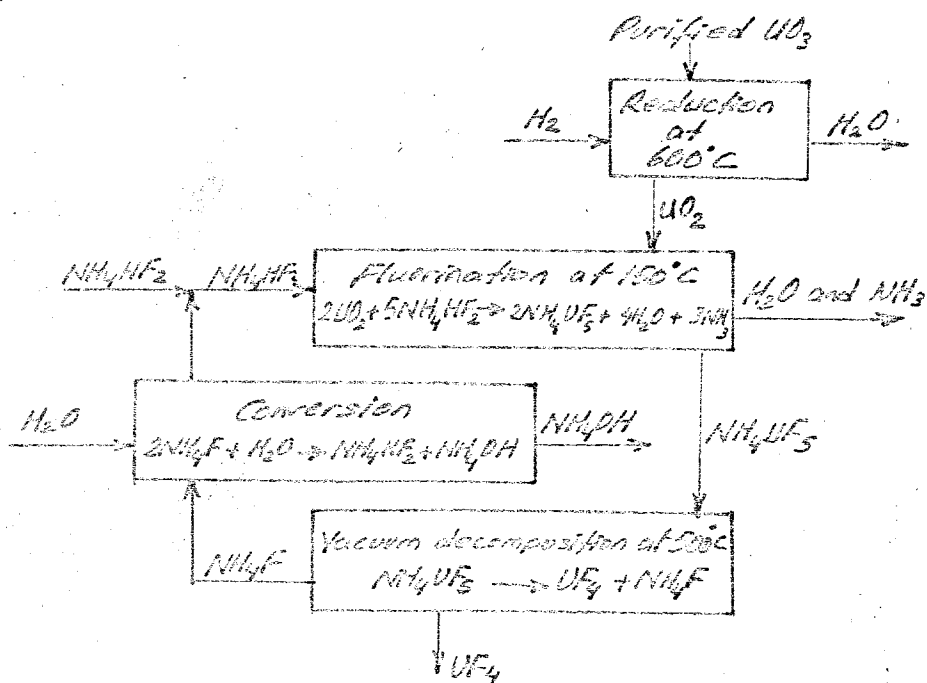 Purified UO₃
Reduction
at
600°C
H₂
H₂O
UO₂
NH₄HF₂
NH₄HF₂
Fluorination at 150°C
2UO₂ + 5NH₄HF₂ → 2NH₄UF₅ + 4H₂O + 3NH₃
H₂O and NH₃
H₂O
Conversion
2NH₄F + H₂O → NH₄HF₂ + NH₄OH
NH₄OH
NH₄UF₅
Vacuum decomposition at 500°C
NH₄UF₅ → UF₄ + NH₄F
NH₄F
UF₄